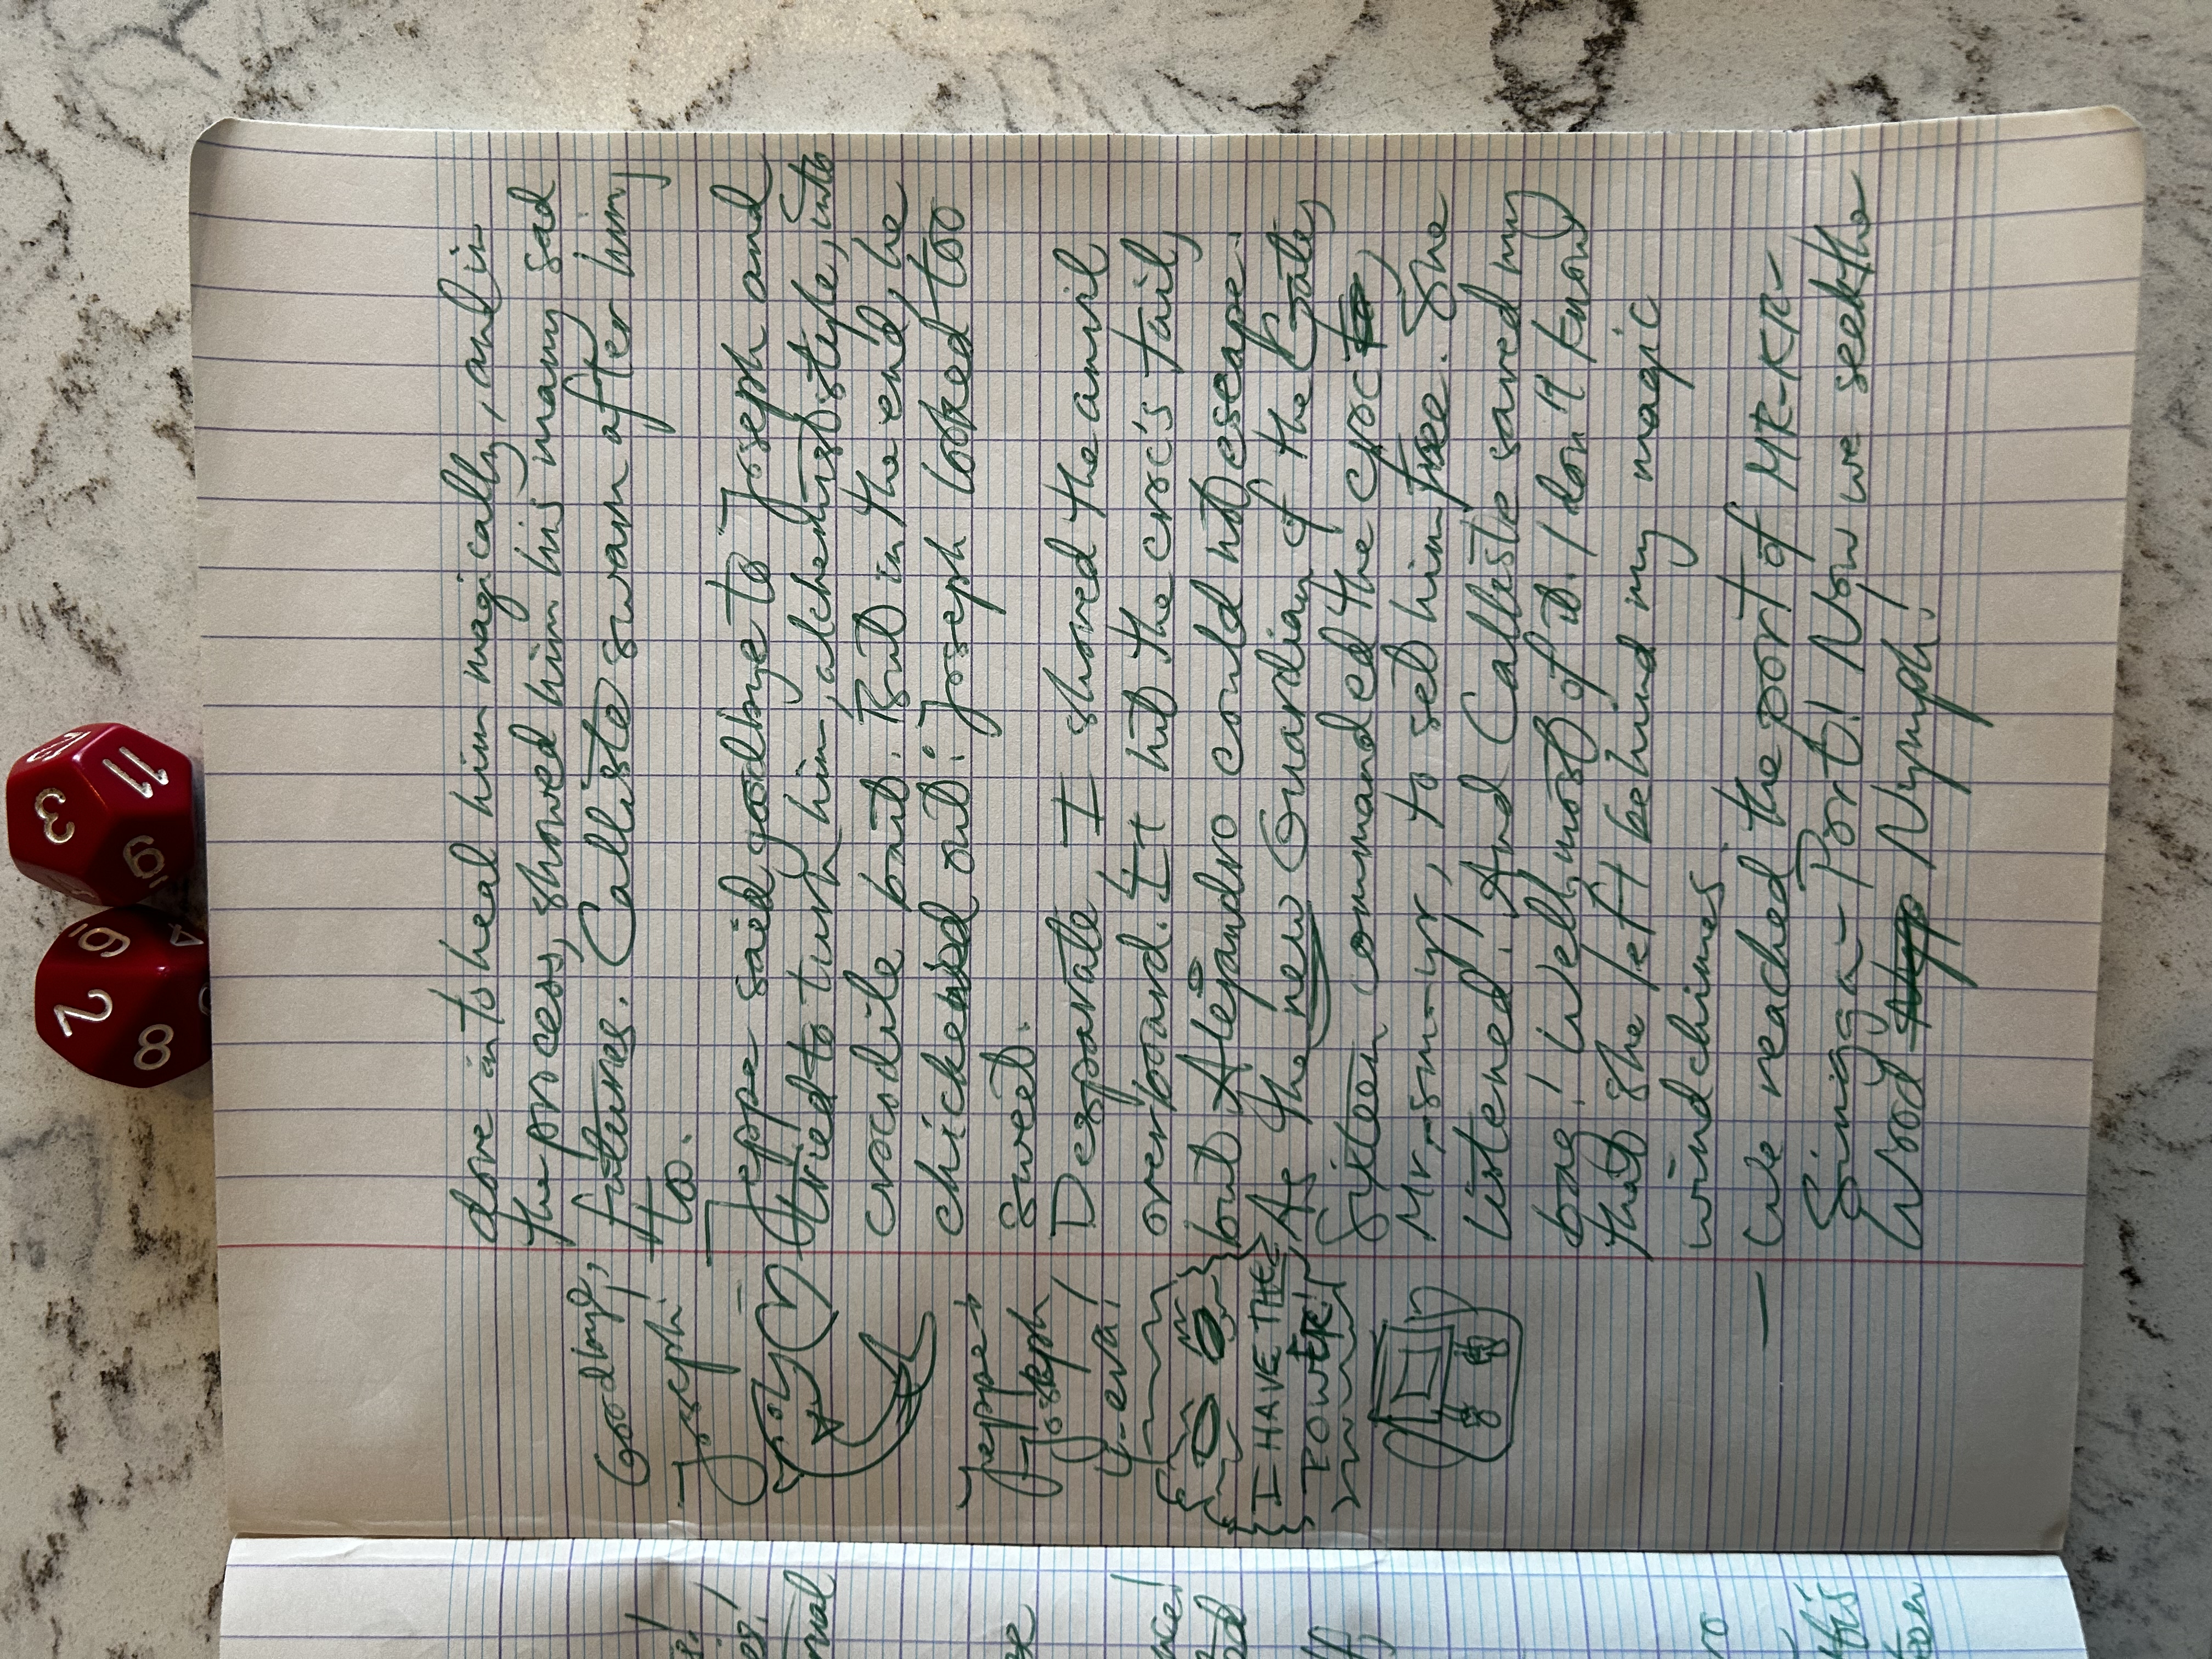 dove in to heal him magically, and in
the process, showed him his many sad
futures. Calliste swam after him,
too.
Goodbye,
Joseph!
Jeppe said goodbye to Joseph and
tried to turn him, alchemist style, into
crocodile bait. But in the end, he
chickened out: Joseph looked too
sweet.
Jeppe +
Joseph
4-eva!
Desparate I shoved the anvil
overboard. It hit the croc's tail,
but Alejandro could not escape.
As the new Guardian of the Gate,
Sixteen commanded the croc,
Mr. Sm-yr, to set him free. She
listened. And Calliste saved my
bag! (Well, most of it. I don't know
that she left behind my magic
windchimes.
I HAVE THE
POWER!
— We reached the port of MR-KR-
Singga-Port! Now we seek the
Wood Nymph!
3
11
12
9
2
6
8
4
is!
es!
rnal
se
nce!
od
f,
ro
this
ton